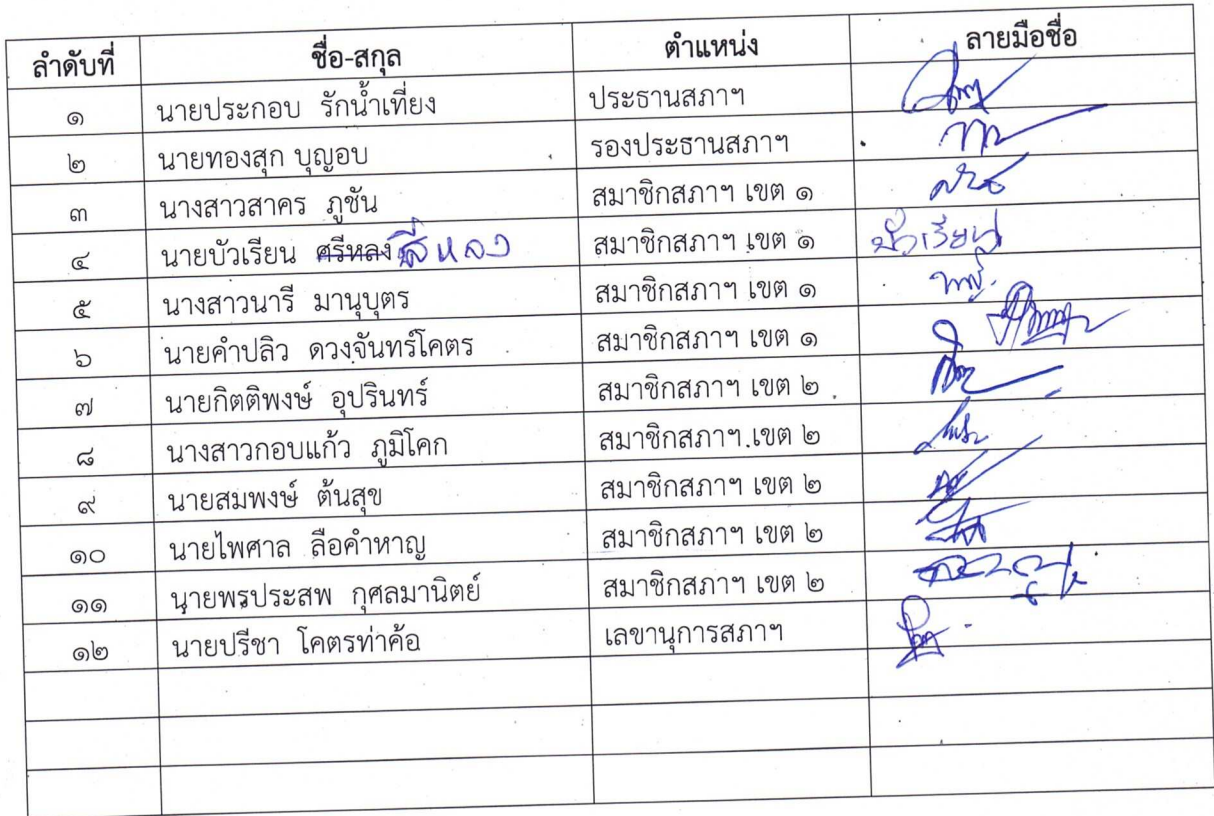 ลำดับที่ ชื่อ-สกุล ตำแหน่ง ลายมือชื่อ
๑ นายประกอบ รักน้ำเที่ยง ประธานสภาฯ
๒ นายทองสุก บุญอบ รองประธานสภาฯ
๓ นางสาวสาคร ภูชัน สมาชิกสภาฯ เขต ๑
๔ นายบัวเรียน ศรีหลง สีหลง สมาชิกสภาฯ เขต ๑ บัวเรียน
๕ นางสาวนารี มานุบุตร สมาชิกสภาฯ เขต ๑
๖ นายคำปลิว ดวงจันทร์โคตร สมาชิกสภาฯ เขต ๑
๗ นายกิตติพงษ์ อุปรินทร์ สมาชิกสภาฯ เขต ๒
๘ นางสาวกอบแก้ว ภูมิโคก สมาชิกสภาฯ เขต ๒
๙ นายสมพงษ์ ต้นสุข สมาชิกสภาฯ เขต ๒
๑๐ นายไพศาล ลือคำหาญ สมาชิกสภาฯ เขต ๒
๑๑ นายพรประสพ กุศลมานิตย์ สมาชิกสภาฯ เขต ๒
๑๒ นายปรีชา โคตรท่าค้อ เลขานุการสภาฯ